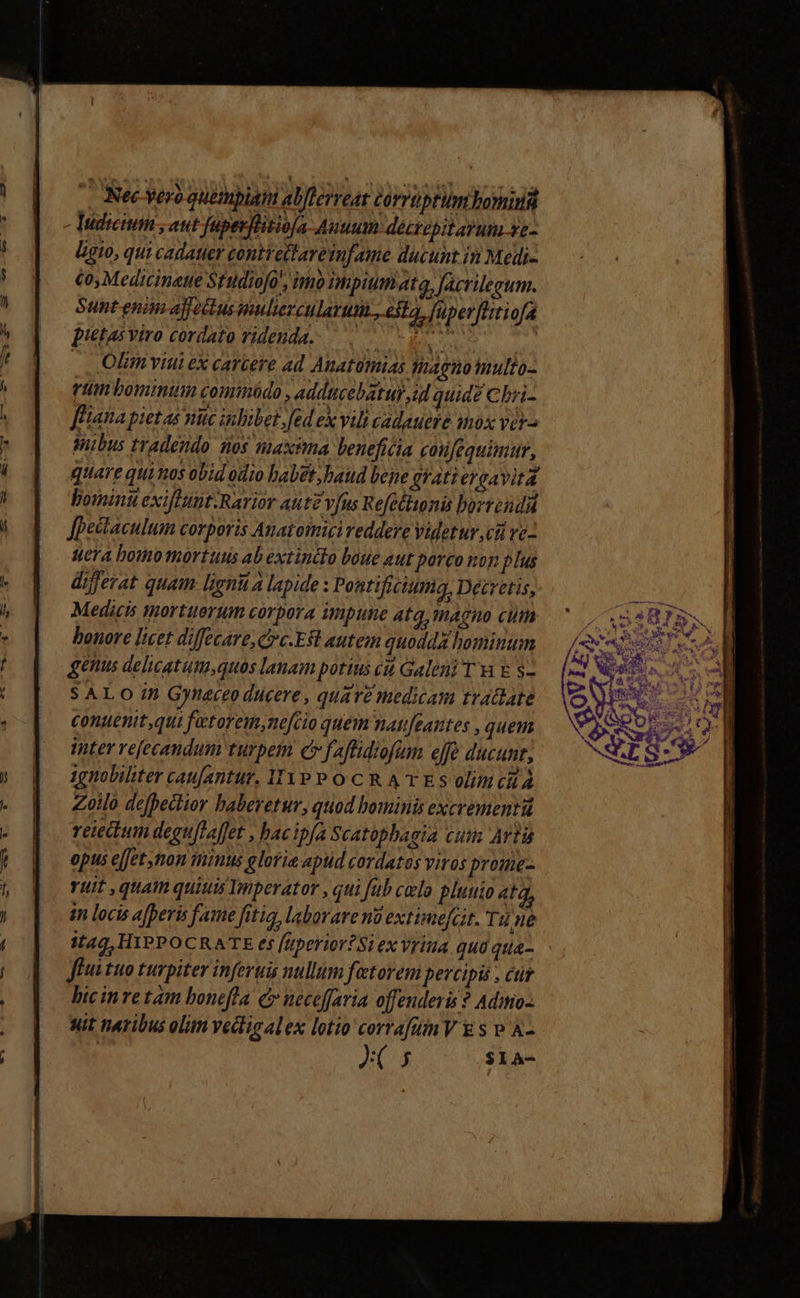 Nec verò quempiam abſterreat corruptum hominū
Iudicium, aut ſuperſtitioſa Anuum decrepitarum re-
ligio, qui cadauer contrectare infame ducunt in Medi-
co, Medicinæue Studioſo, imò impium atq, ſacrilegum.
Sunt enim affectus muliercularum, eſtq, ſuperſtitioſa
pietas viro cordato ridenda.
Olim viui ex carcere ad Anatomias magno multo-
rum hominum commodo, adducebātur, id quidē Chri-
ſtiana pietas nūc inhibet, ſed ex vili cadauere mox ver-
mibus tradendo nos maxima beneficia conſequimur,
quare qui nos ob id odio habēt, haud bene grati erga vitā
hominū exiſtunt. Rarior autē vſus Refectionis horrendū
ſpectaculum corporis Anatomici reddere videtur, cū re-
uera homo mortuus ab extincto boue aut porco non plus
differat quam lignū à lapide: Pontificiumq, Decretis,
Medicis mortuorum corpora impune atq, magno cum
honore licet diſſecare, &c. Eſt autem quoddā hominum
genus delicatum, quos lanam potius cū Galeni THES-
SALO in Gynæceo ducere, quā rē medicam tractare
conuenit, qui fœtorem, neſcio quem nauſeantes, quem
inter reſecandum turpem & faſtidioſum eſſe ducunt,
ignobiliter cauſantur. HIPPOCRATES olim cū à
Zoilo deſpectior haberetur, quod hominis excrementū
reiectum deguſtaſſet, hac ipſa Scatophagia cum Artis
opus eſſet, non minus gloriæ apud cordatos viros prome-
ruit, quam quiuis Imperator, qui ſub cœlo pluuio atq,
in locis aſperis fame ſitiq, laborare nō extimeſcit. Tū ne
itaq, HIPPOCRATE es ſuperior? Si ex vrina quā quæ-
ſtui tuo turpiter inſeruis nullum fœtorem percipis, cur
hic in re tàm honeſta & neceſſaria offenderis? Admo-
uit naribus olim vectigal ex lotio corraſum VESPA-
)( 5 SIA-